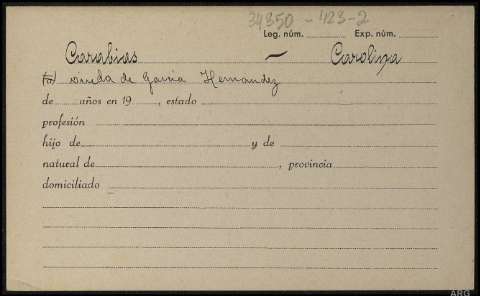 34350 - 423-2
Leg. núm. Exp. núm.
Carabias — Carolina
(a) viuda de Garcia Hernandez
de años en 19 , estado
profesión
hijo de y de
natural de , provincia
domiciliado
ARG